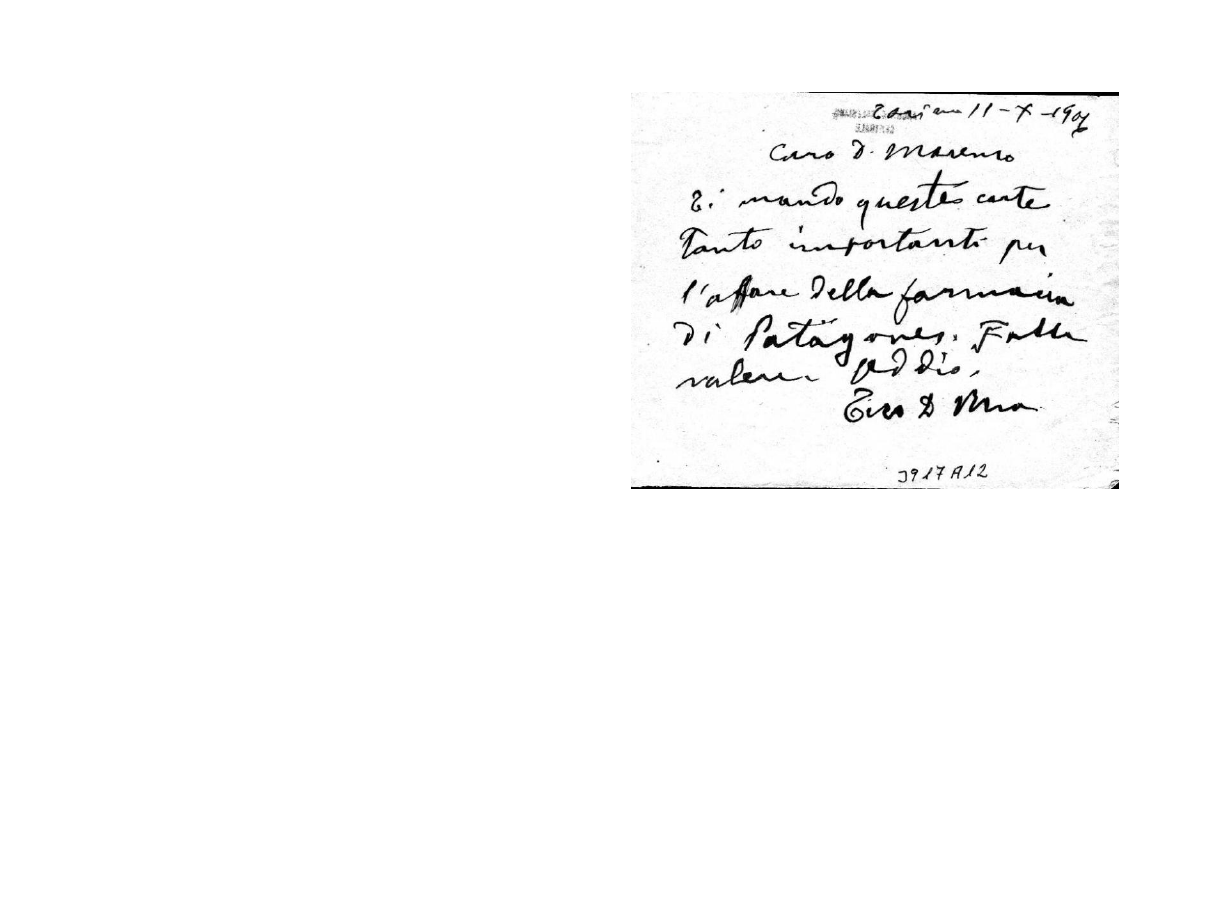 Torino 11-X-1906
Caro D. Marenco
Ti mando queste carte
tanto importanti per
l'affare della farmacia
di Patagones. Falle
valere. Addio.
Tuo D Rua
J917A12